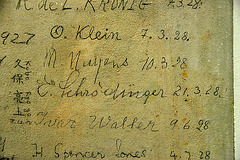 R. de L. KRONIG 7.3.28.
1927 O. Klein 7.3.28.
M. 10.3.28
久保亮五
E. Schrödinger 21.3.28
Ivar Waller 9.6.28
H. Spencer Jones 4.7.28